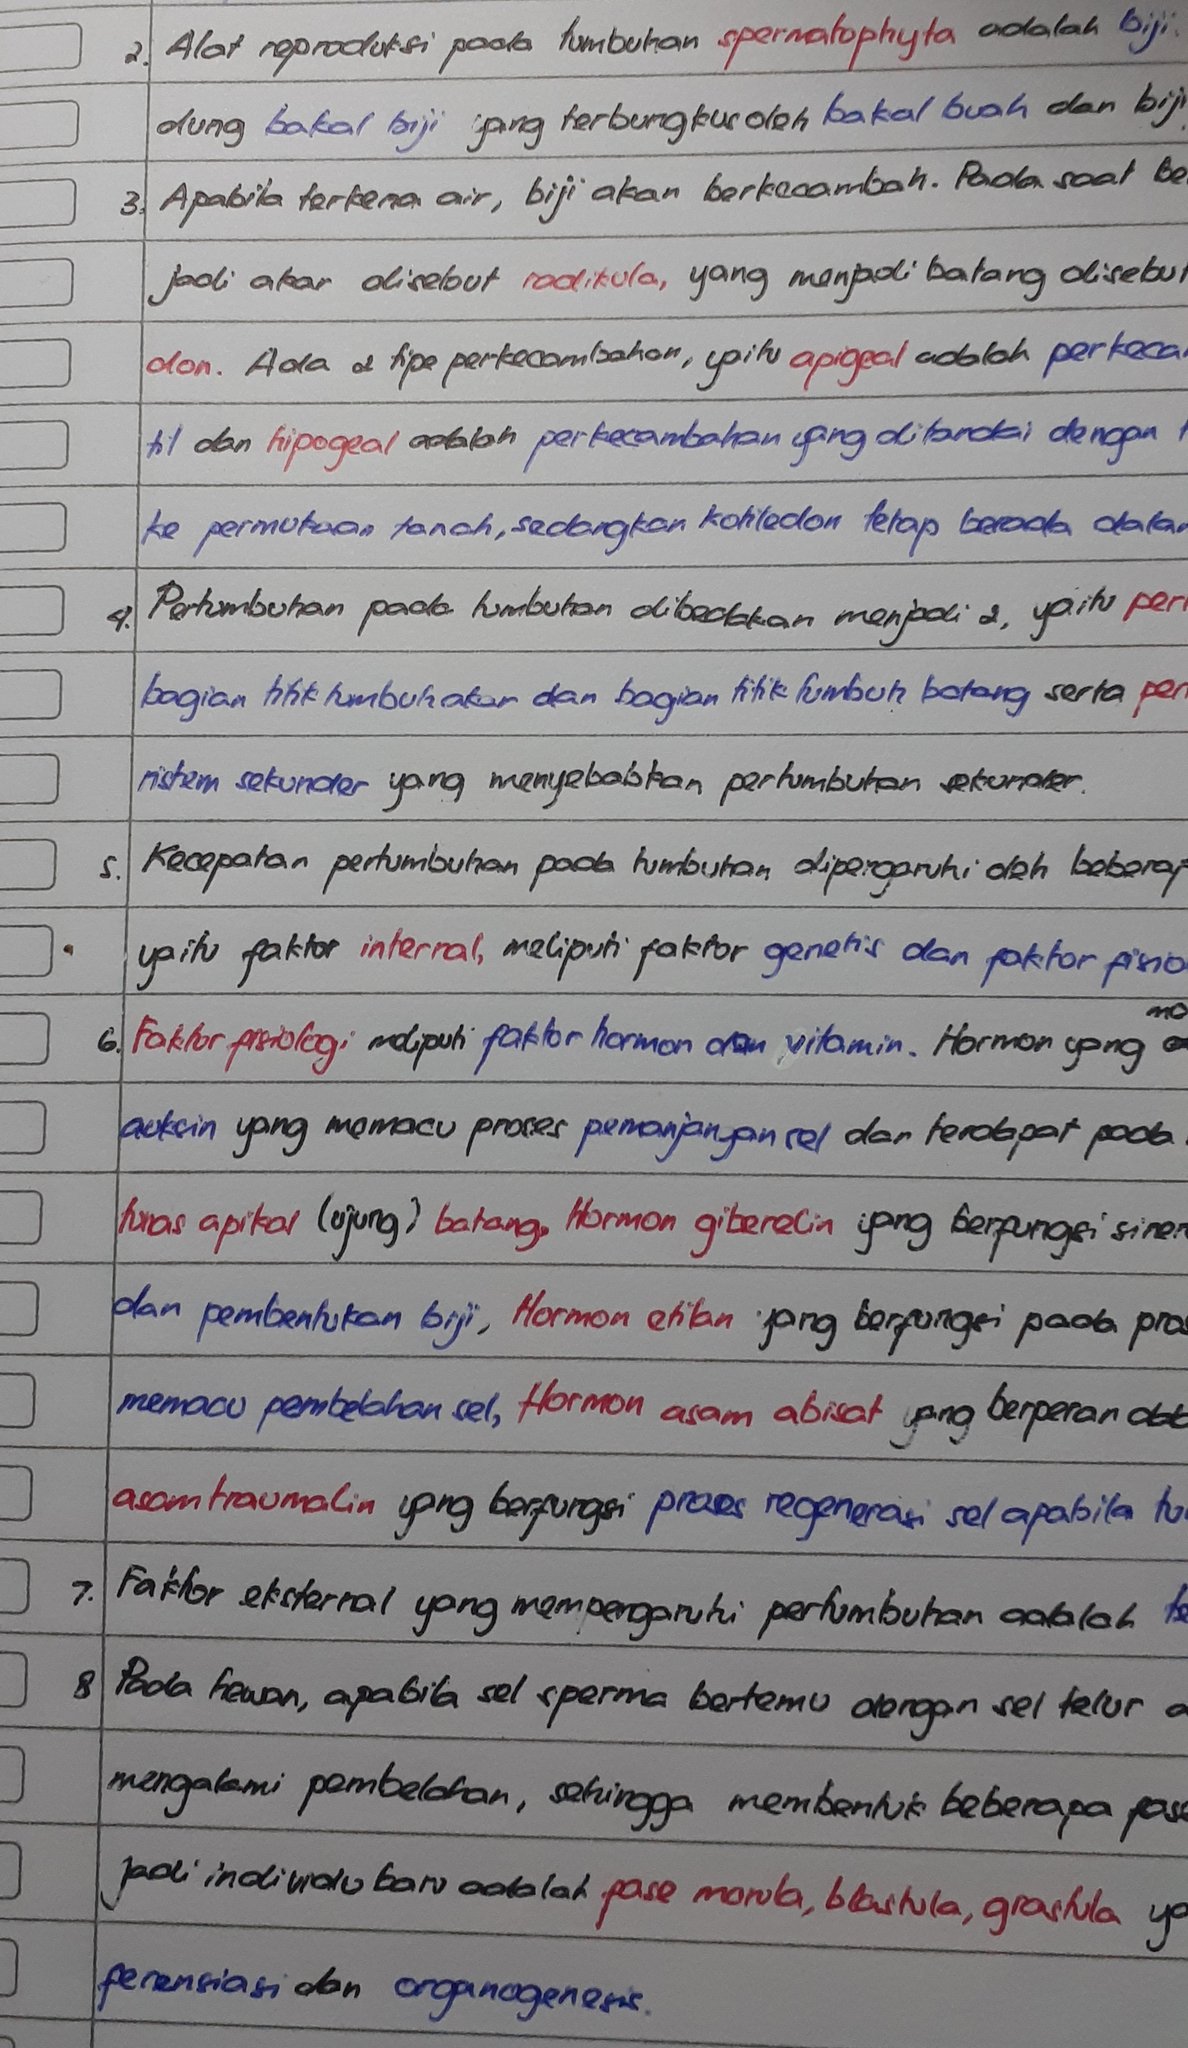 2. Alat reproduksi pada tumbuhan spermatophyta adalah biji.
dung bakal biji yang terbungkus oleh bakal buah dan biji
3. Apabila terkena air, biji akan berkecambah. Pada saat be
jadi akar disebut radikula, yang menjadi batang disebut
don. Ada 2 tipe perkecambahan, yaitu apigeal adalah perkeca
til dan hipogeal adalah perkecambahan yang ditandai dengan t
ke permukaan tanah, sedangkan kotiledon tetap berada dalam
4. Pertumbuhan pada tumbuhan dibedakan menjadi 2, yaitu per
bagian titik tumbuh akar dan bagian titik tumbuh batang serta per
ristem sekunder yang menyebabkan pertumbuhan sekunder.
5. Kecepatan pertumbuhan pada tumbuhan dipengaruhi oleh beberap
yaitu faktor internal, meliputi faktor genetis dan faktor fisio
6. Faktor fisiologi meliputi faktor hormon dan vitamin. Hormon yang
auksin yang memacu proses pemanjangan sel dan terdapat pada
tunas apikal (ujung) batang, Hormon giberelin yang berfungsi siner
dan pembentukan biji, Hormon etilan yang berfungsi pada pros
memacu pembelahan sel, Hormon asam abisat yang berperan dal
asam traumalin yang berfungsi proses regenerasi sel apabila tu
7. Faktor eksternal yang mempengaruhi pertumbuhan adalah te
8 Pada hewan, apabila sel sperma bertemu dengan sel telur a
mengalami pembelahan, sehingga membentuk beberapa pase
jadi individu baru adalah pase morula, blastula, grastula ya
ferensiasi dan organogenesis.